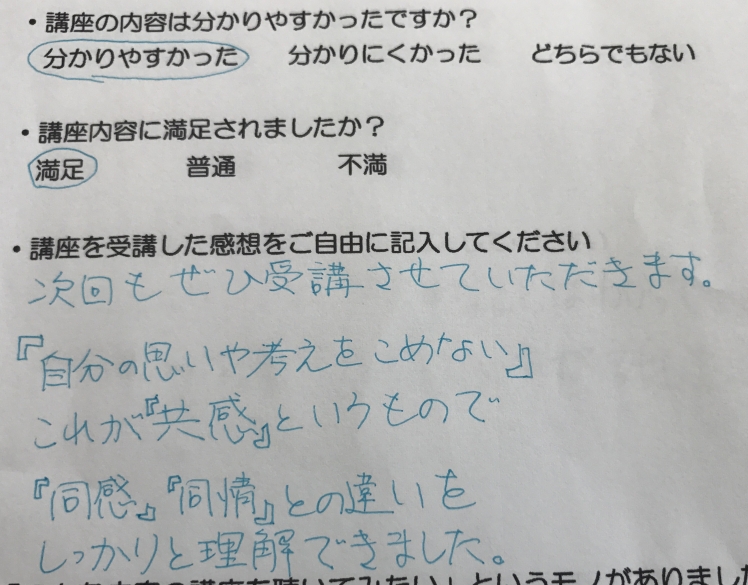 ・講座の内容は分かりやすかったですか？
分かりやすかった　分かりにくかった　どちらでもない
・講座内容に満足されましたか？
満足　普通　不満
・講座を受講した感想をご自由に記入してください
次回もぜひ受講させていただきます。
『自分の思いや考えをこめない』
これが『共感』というもので
『同感』『同情』との違いを
しっかりと理解できました。
の講座を聴いてみたい」というモノがありました